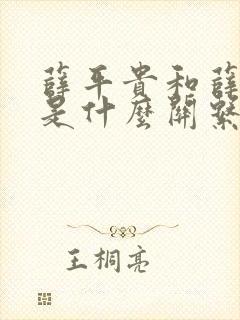 薛平貴和薛
是什麼關係
王桐亮